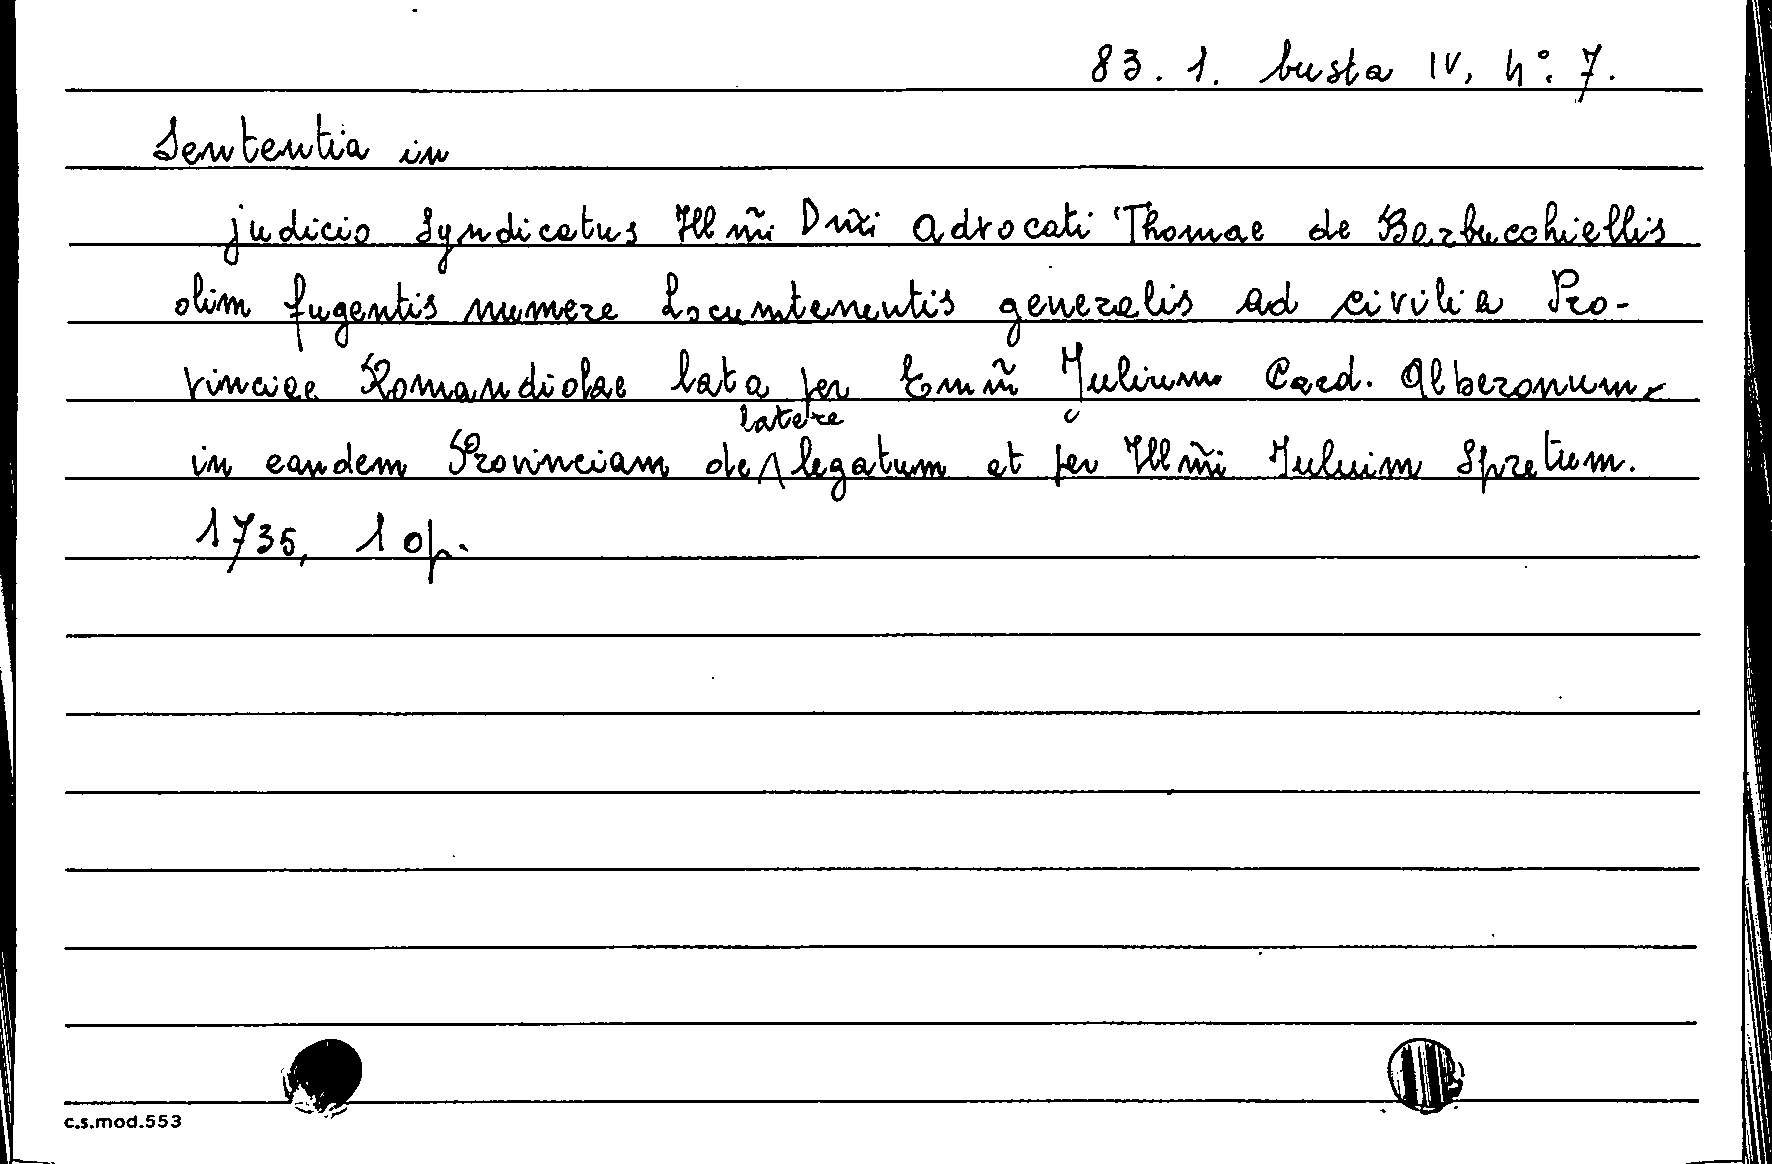 83. 1. busta IV, n°. 7.
Sententia in
judicio Syndicatus Illm̃i Dñi Advocati Thomae de Barbucchiellis
olim fugentis numere Locumtenentis generalis ad civilia Pro-
vinciae Romandiolae lata per Em̃m Julium Card. Alberonum
latere
in eandem Provinciam de legatum et per Illm̃i Juluim Spretum.
1735, 1 op.
c.s.mod.553